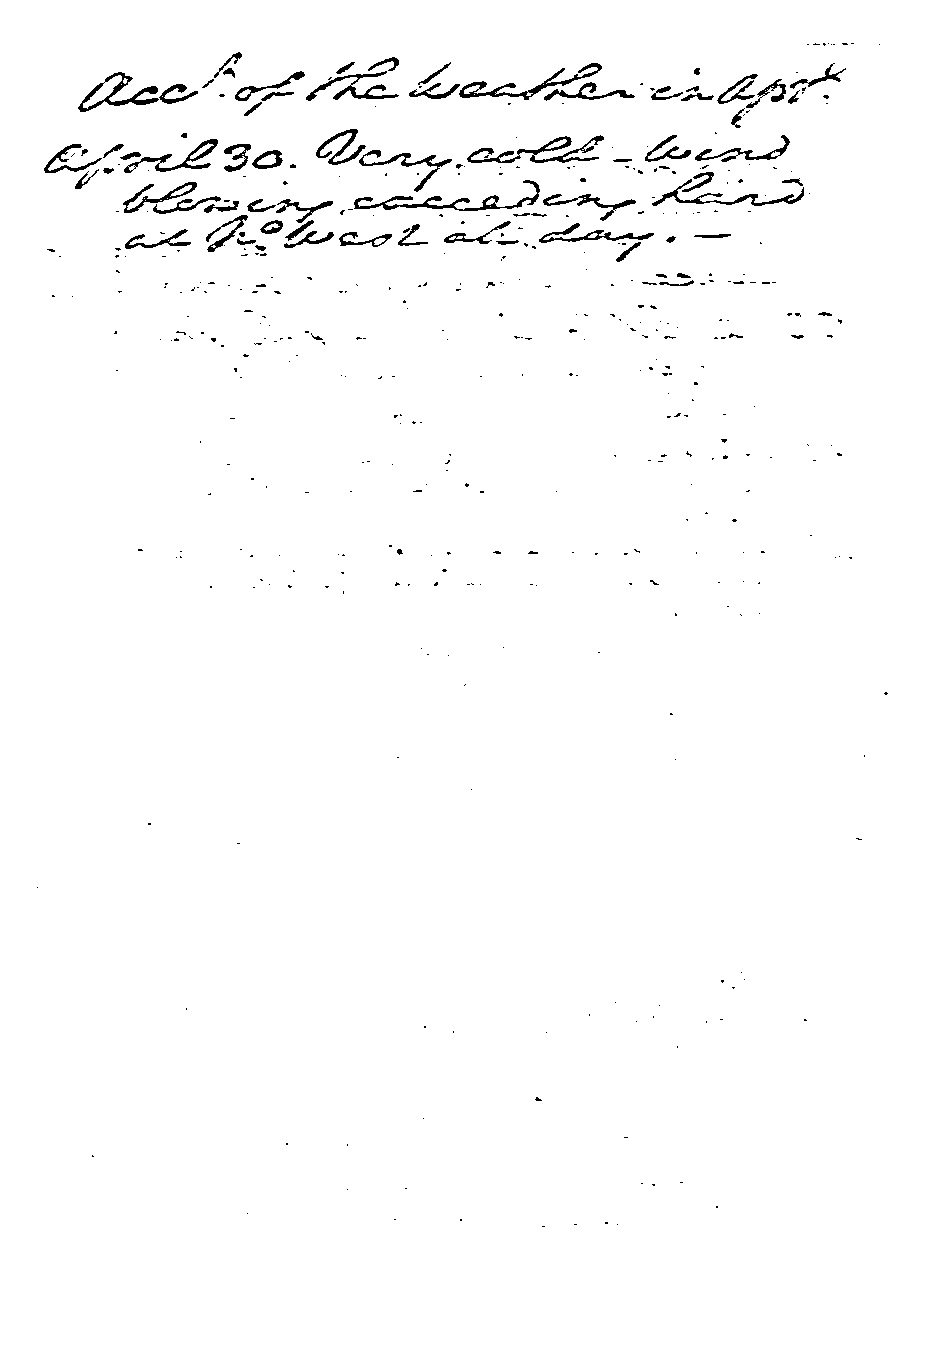 Acct. of the Weather in Aprl.
April 30. Very cold – Wind
blowing exceeding hard
at No. West al day. –